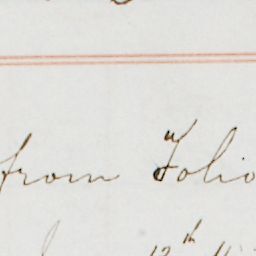 from Folio
12th